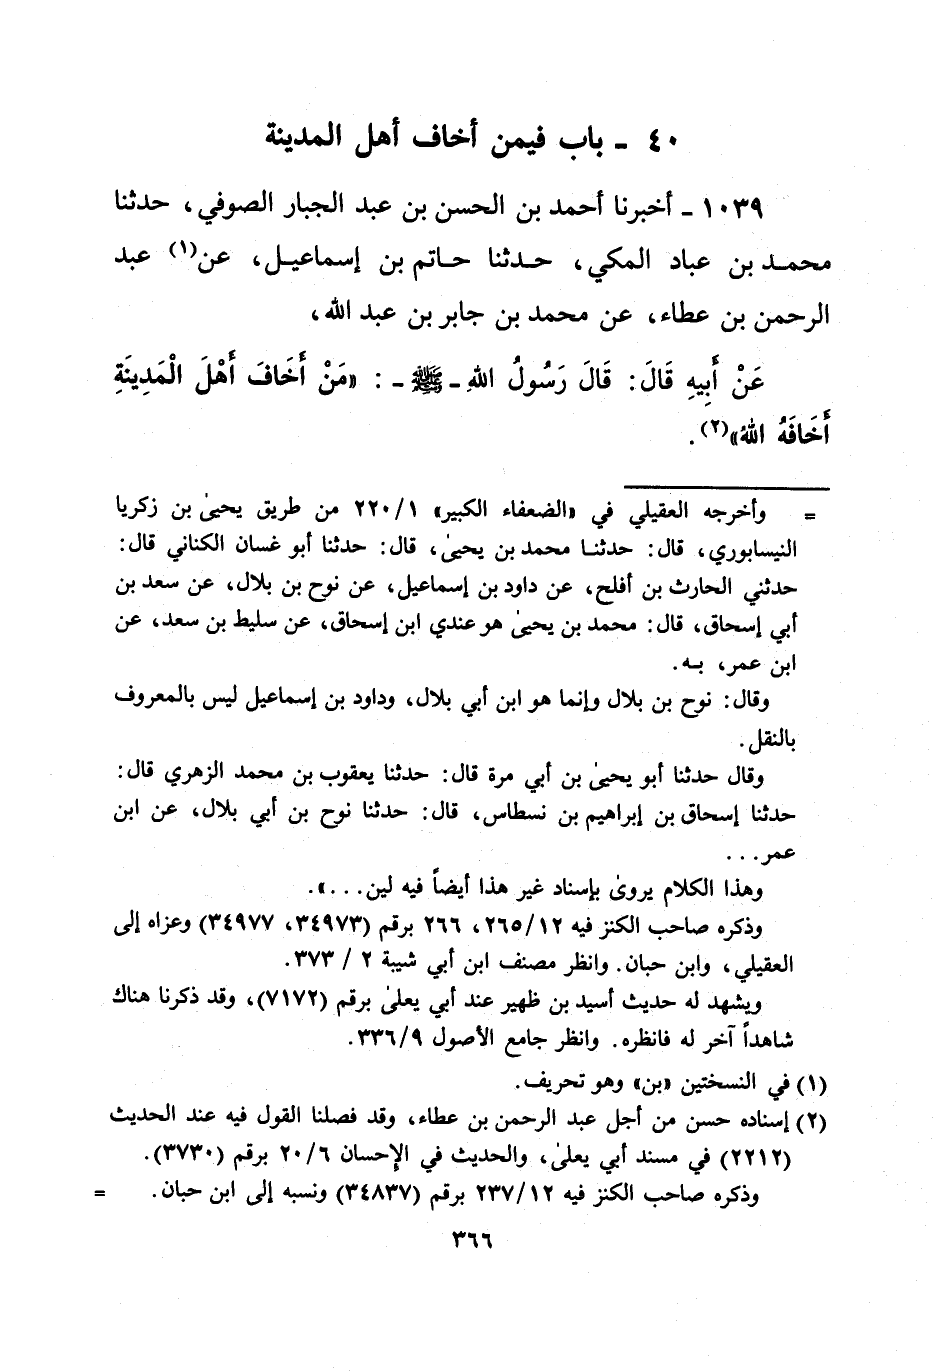 ٤٠ ـ باب فيمن أخاف أهل المدينة
١٠٣٩ ـ أخبرنا أحمد بن الحسن بن عبد الجبار الصوفي، حدثنا
محمد بن عباد المكي، حدثنا حاتم بن إسماعيل، عن(١) عبد
الرحمن بن عطاء، عن محمد بن جابر بن عبد الله،
عَنْ أَبِيهِ قَالَ: قَالَ رَسُولُ اللهِ ـ ﷺ ـ : «مَنْ أَخَافَ أَهْلَ الْمَدِينَةِ
أَخَافَهُ اللهُ»(٢).
= وأخرجه العقيلي في «الضعفاء الكبير» ٢٢٠/١ من طريق يحيىٰ بن زكريا
النيسابوري، قال: حدثنا محمد بن يحيىٰ، قال: حدثنا أبو غسان الكناني قال:
حدثني الحارث بن أفلح، عن داود بن إسماعيل، عن نوح بن بلال، عن سعد بن
أبي إسحاق، قال: محمد بن يحيىٰ هو عندي ابن إسحاق، عن سليط بن سعد، عن
ابن عمر، به.
وقال: نوح بن بلال وإنما هو ابن أبي بلال، وداود بن إسماعيل ليس بالمعروف
بالنقل.
وقال حدثنا أبو يحيىٰ بن أبي مرة قال: حدثنا يعقوب بن محمد الزهري قال:
حدثنا إسحاق بن إبراهيم بن نسطاس، قال: حدثنا نوح بن أبي بلال، عن ابن
عمر...
وهذا الكلام يروىٰ بإسناد غير هذا أيضاً فيه لين...».
وذكره صاحب الكنز فيه ٢٦٥/١٢، ٢٦٦ برقم (٣٤٩٧٣، ٣٤٩٧٧) وعزاه إلى
العقيلي، وابن حبان. وانظر مصنف ابن أبي شيبة ٢ / ٣٧٣.
ويشهد له حديث أسيد بن ظهير عند أبي يعلىٰ برقم (٧١٧٢)، وقد ذكرنا هناك
شاهداً آخر له فانظره. وانظر جامع الأصول ٣٣٦/٩.
(١) في النسختين «بن» وهو تحريف.
(٢) إسناده حسن من أجل عبد الرحمن بن عطاء، وقد فصلنا القول فيه عند الحديث
(٢٢١٢) في مسند أبي يعلىٰ، والحديث في الإحسان ٢٠/٦ برقم (٣٧٣٠).
وذكره صاحب الكنز فيه ٢٣٧/١٢ برقم (٣٤٨٣٧) ونسبه إلى ابن حبان. =
٣٦٦